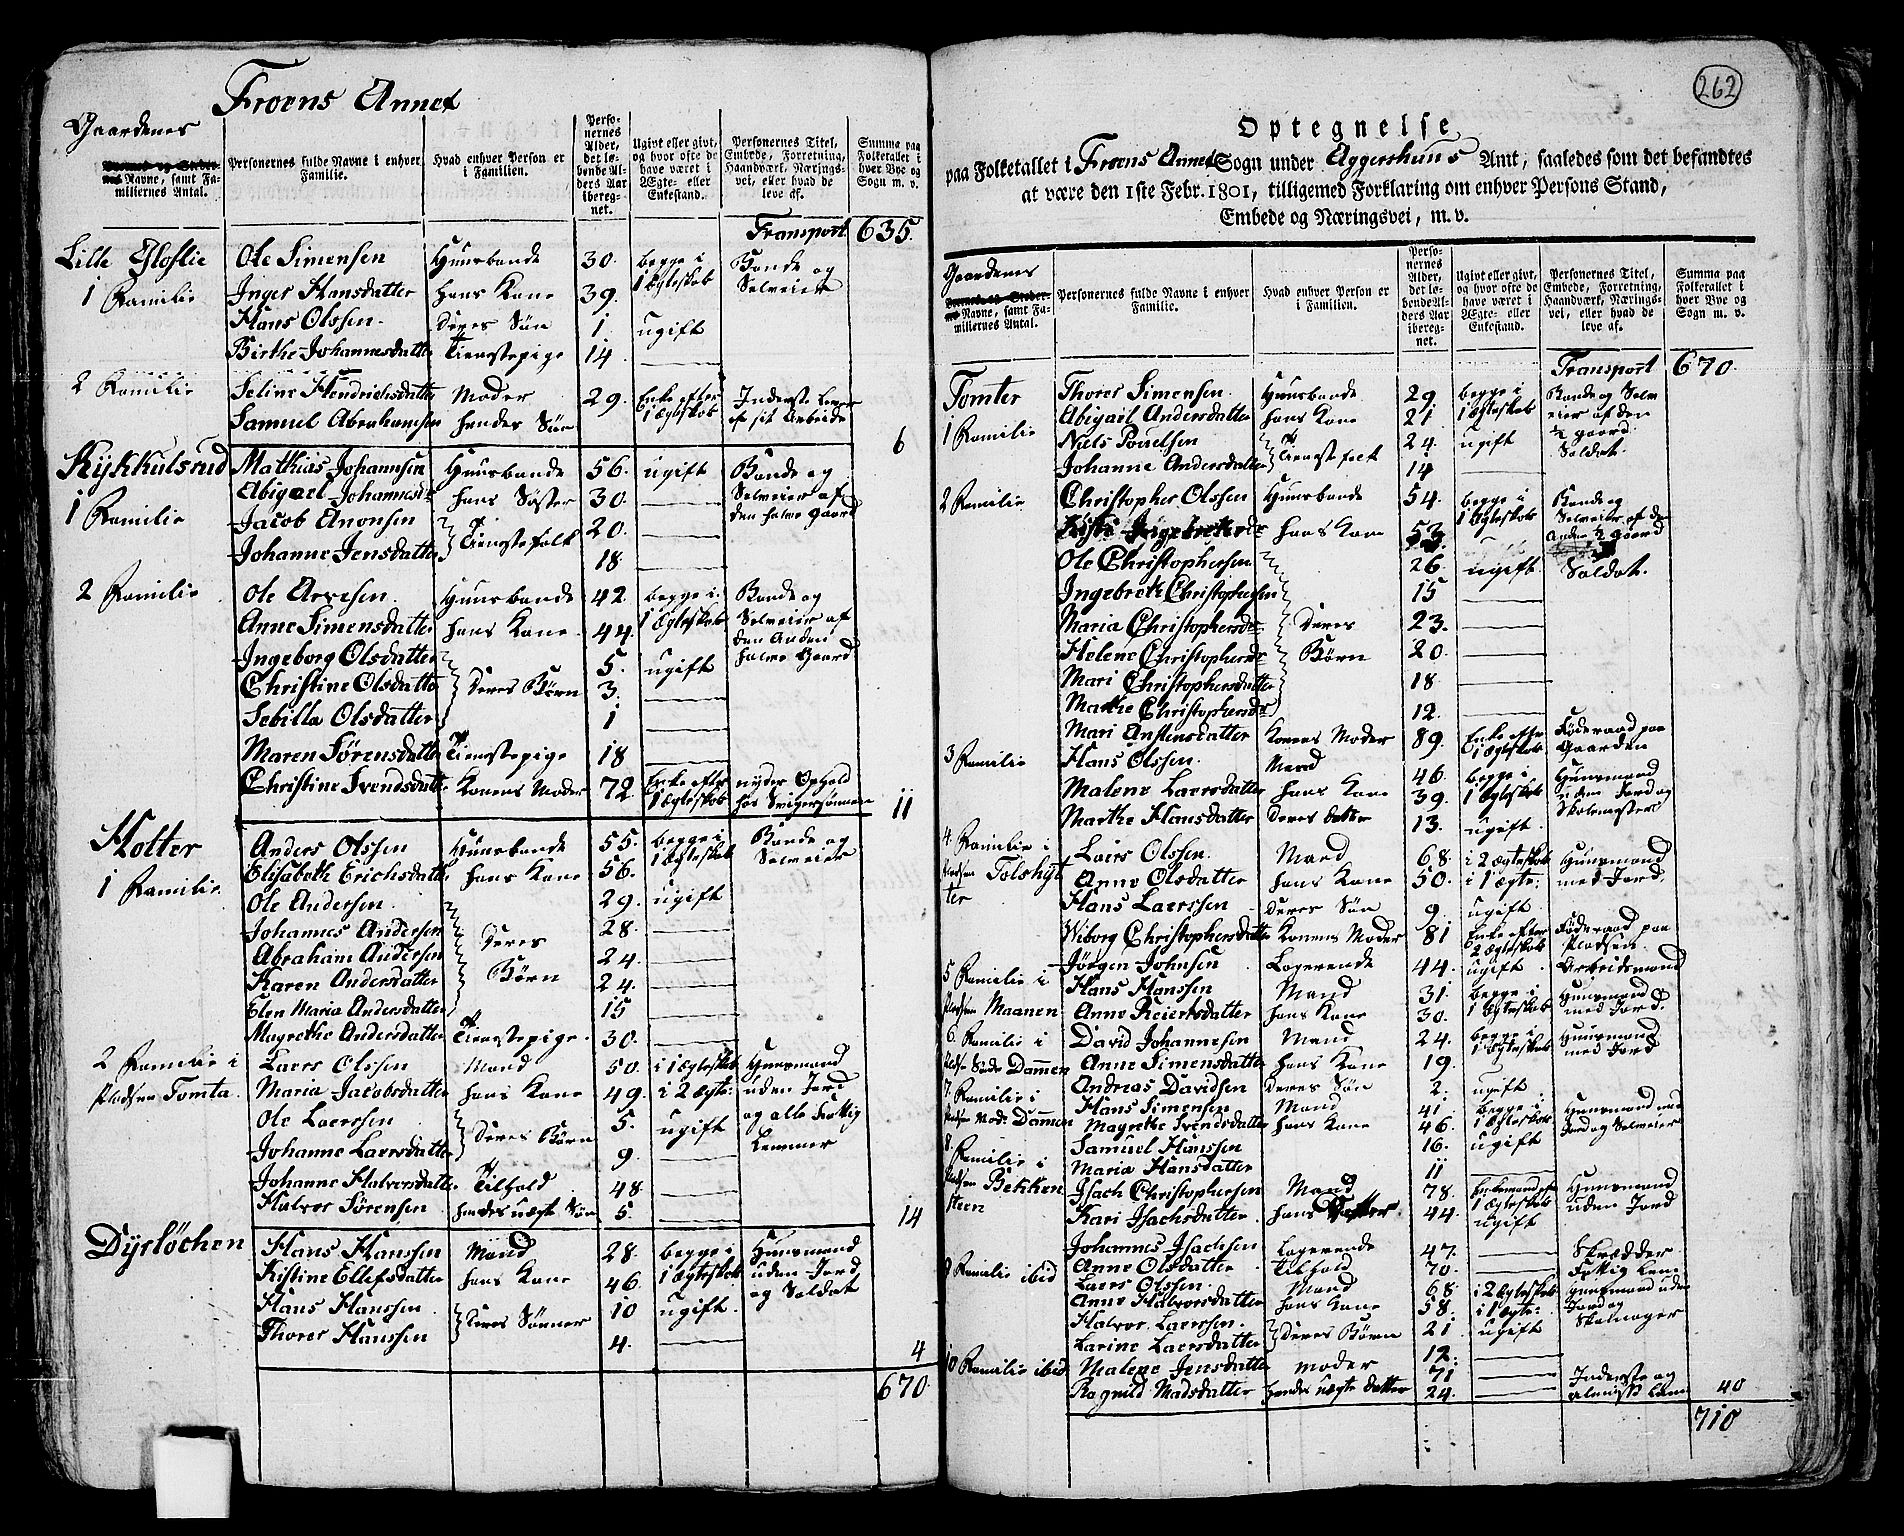 Froens Annex
Gaardenes
Personernes fulde Navne i enhver Familie.
Hvad enhver Person er i Familien.
Personernes Alder, det løbende Alders Aar iberegnet.
Ugivt eller givt, og hvor ofte de have været i Ægte- eller Enkestand.
Personernes Titel, Embede, Forretning, Haandværk, Næringsvei, eller hvad de leve af.
Summa paa Folketallet i hver Bye og Sogn m. v.
Navne, samt Familiernes Antal.
Transport 635.
Lille Gloslie Ole Simensen Huusbonde 30. begge i Bonde og
1 Familie Inger Hansdatter hans Kone 39. 1 Ægteskab Selveier
Hans Olssen. Deres Søn 1. ugift
Birthe Johannesdatter Tienestepige 14 —
2 Familie Seline Hendrichsdatter Moder 29. Enke efter Inderste Lever
Samuel Abrahamsen hendes Søn 1 Ægteskab af sit Arbeide
6
Kykkulsrud Mathias Johannsen Huusbonde 56. ugift Bonde og
Abigael Johannesd: hans Søster 30. — Selveier af
1 Familie Jacob Anonsen Tienestefolk 20. — den halve Gaard
Johanne Jensdatter 18 —
2 Familie Ole Arvesen. Huusbonde 42. begge i Bonde og
Anne Simensdatter hans Kone 44. 1 Ægteskab Selveier af
Ingeborg Olsdatter 5. ugift den Anden
Christine Olsdatter Deres Børn 3. — halve Gaard
Sebilla Olsdatter 1 —
Maren Sørensdatter Tienestepige 18 —
Christine Svendsdatt: Konens Moder 72. Enke efter nyder Ophold
1 Ægteskab hos Svigersønnen 11
Hotter Anders Olssen Huusbonde 55. begge i Bonde og
Elisabeth Erichsdatt: hans Kone 56. 1 Ægteskab Selveier
1 Familie Ole Andersen. 29. ugift
Johannes Andersen Deres 28. —
Abraham Andersen Børn 24. —
Karen Andersdatter 24. —
Elen Maria Andersdatter 15 —
Magrethe Andersdatter Tienestepige. 30. —
2 Familie i Laers Olssen Mand 50. i 1 Ægteskab Huusmand
Pladsen Tomta. Maria Jacobsdatter hans Kone 49. i 2 Ægte: uden Jord
Ole Laerssen Deres Børn 5. ugift og alle Fattig
Johanne Laersdatter 9. — Lemmer
Johanne Halvorsdatter Tilhold 48. —
Halvor Sørensen hendes uægte Søn 5. — 14
Dysløchen Hans Hanssen Mand 28. begge i Huusmand
Kistine Ellefsdatter hans Kone 46. 1 Ægteskab uden Jord
Hans Hanssen Deres Sønner 10 ugift. og Soldat
Thorer Hanssen 4. — 4
670
262
Optegnelse
paa Folketallet i Froens Annex Sogn under Aggershuus Amt, saaledes som det befandtes
at være den 1ste Febr. 1801, tilligemed Forklaring om enhver Persons Stand,
Embede og Næringsvei, m. v.
Gaardenes
Navne, samt Familiernes Antal.
Personernes fulde Navne i enhver Familie.
Hvad enhver Person er i Familien.
Personernes Alder, det løbende Alders Aar iberegnet.
Ugivt eller givt, og hvor ofte de have været i Ægte- eller Enkestand.
Personernes Titel, Embede, Forretning, Haandværk, Næringsvei, eller hvad de leve af.
Summa paa Folketallet i hver Bye og Sogn m. v.
Transport 670.
Tomter Thorer Simensen Huusbonde 29 begge i Bonde og Selv
Abigail Andersdatter hans Kone 21 1 Ægteskab eier af den
1 Familie Niels Pouelsen Tienestefolk 24. ugift ½ gaard.
Johanne Andersdatter 14 — Soldat.
2 Familie Christopher Olssen Huusbonde 54. begge i Bonde og
Ingebretsd: hans Kone 53. 1 Ægteskab Selveier af den
Anden ½ Gaard
Ole Christophersen 26. ugift Soldat.
Ingebreth Christophersen 15 —
Maria Christophersd: Deres 23. —
Helene Christophersd: Børn 20. —
Mari Christophersdatter 18 —
Marthe Christophersd: 12. —
Mari Anstensdatter Konens Moder 89. Enke efter Føderaad paa
3 Familie Hans Olssen. Mand 46. 1 Ægteskab Gaarden
Malene Laersdatter hans Kone 39. begge i Huusmand
Marthe Hansdatter Deres datter 13. 1 Ægteskab uden Jord og
ugift. Skolemester
4. Familie i Laers Olssen. Mand 68. i 2 Ægteskab Huusmand
Pladsen Tolshyt Anne Olsdatter hans Kone 50. i 1 Ægte: med Jord.
ter Hans Laerssen Deres Søn 9. ugift.
Wiborg Christophersdatter Konens Moder 81 Enke efter Føderaad paa
Jørgen Johnsen Logerende 44. 2 Ægteskab ugift. Pladsen. Arbeidsmand
5 Familie i Hans Hanssen Mand 31. begge i Huusmand
Pladsen Maanen Anne Reiersdatter hans Kone 30. 1 Ægteskab med Jord.
6. Familie i David Johannesen Mand 24. begge i Huusmand
Pladsen Søndr Dammen Anne Simensdatter hans Kone 19. 1 Ægteskab med Jord
7. Familie i Andreas Davidsen Deres Søn 2. ugift
Pladsen Nord: Dammen Hans Simensen Mand 41. begge i Huusmand med
Magrethe Svendsdatter hans Kone 46. 1 Ægteskab Jord og Selveier
Samuel Hanssen 16. ugift
8. Familie i Maria Hansdatter 11 —
Pladsen Bekken Isach Christophersen Mand 78. Enkemand efter Huusmand
steen Kari Isachsdatter hans Datter 44. 1 Ægteskab ugift uden Jord
Johannes Isachsen Logerende 47. — Skrædder
Anne Olsdatter Tilhold 70. — Fattig Lem
9 Familie ibid Laers Olssen. Mand 68. i 2 Ægteskab Huusmand uden
Anne Halvorsdatter hans Kone 58. i 1 Ægte: Jord og
Halvor Laerssen. Deres Børn 21 ugift Skomager
Larine Laersdatter 12. —
10 Familie ibid Malene Jensdatter moder 71 — Inderste og
Ragnild Madsdatter hendes uægte datter 24. — Almisse Lem 40
710